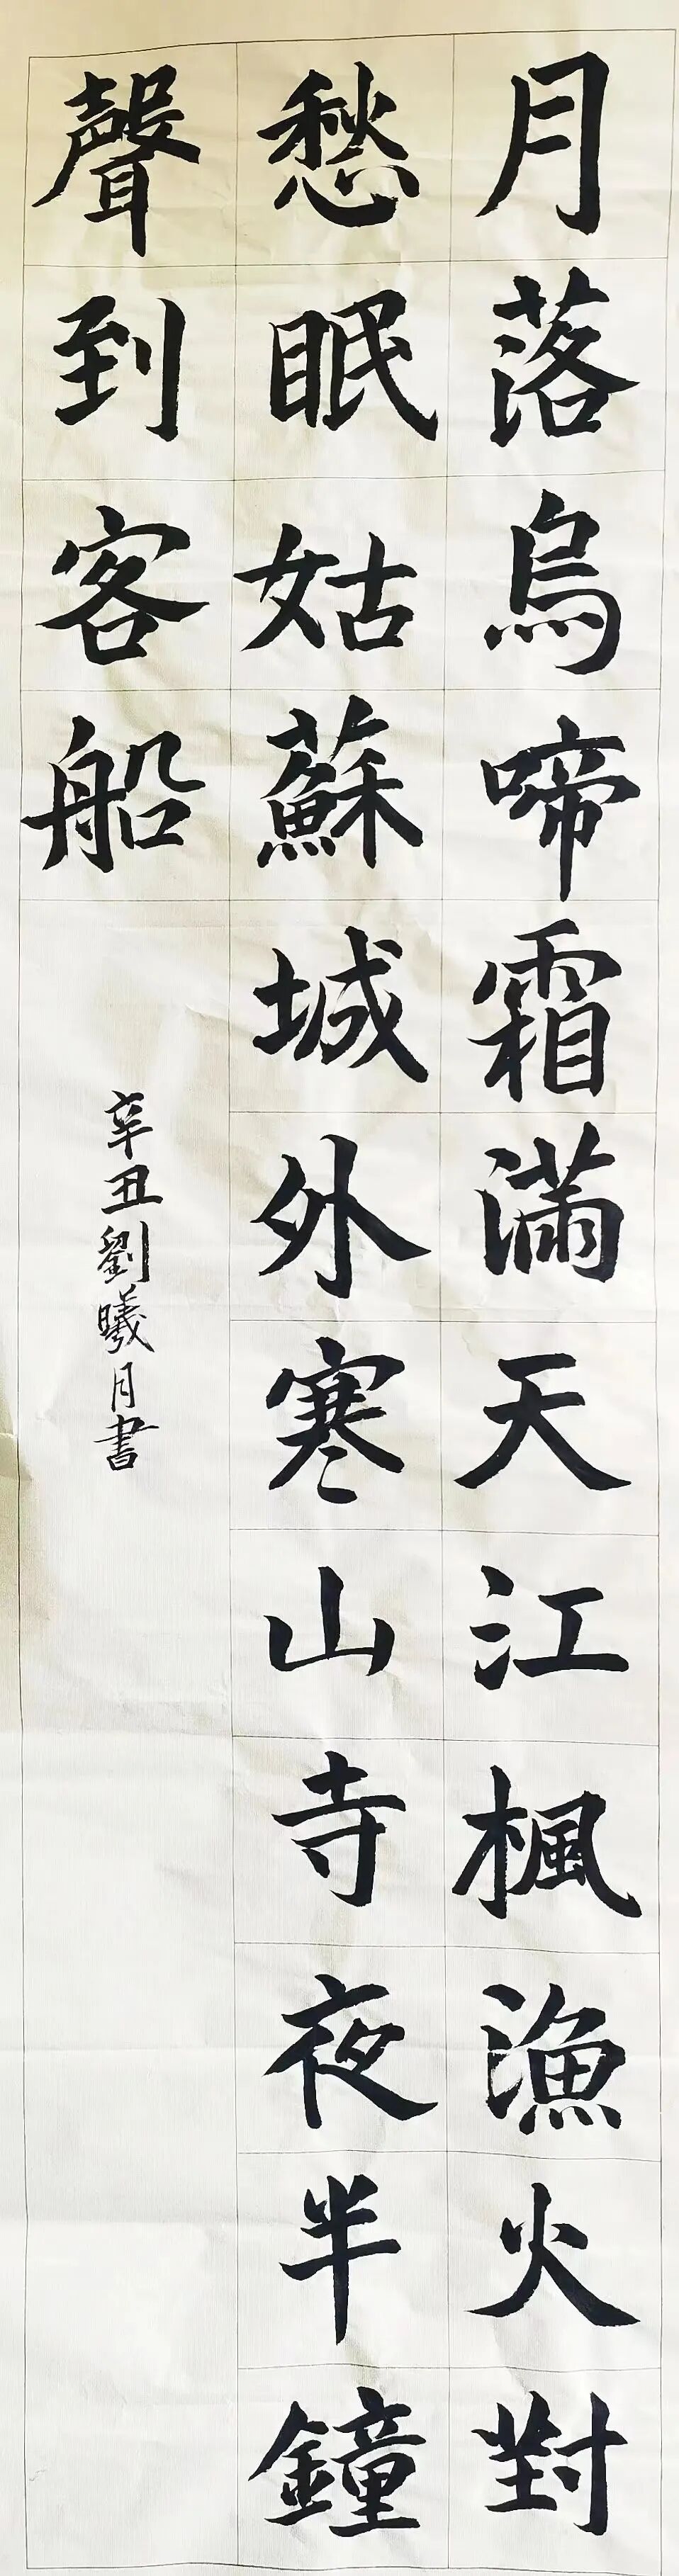 月落烏啼霜滿天江楓漁火對
愁眠姑蘇城外寒山寺夜半鐘
聲到客船
辛丑劉曦月書